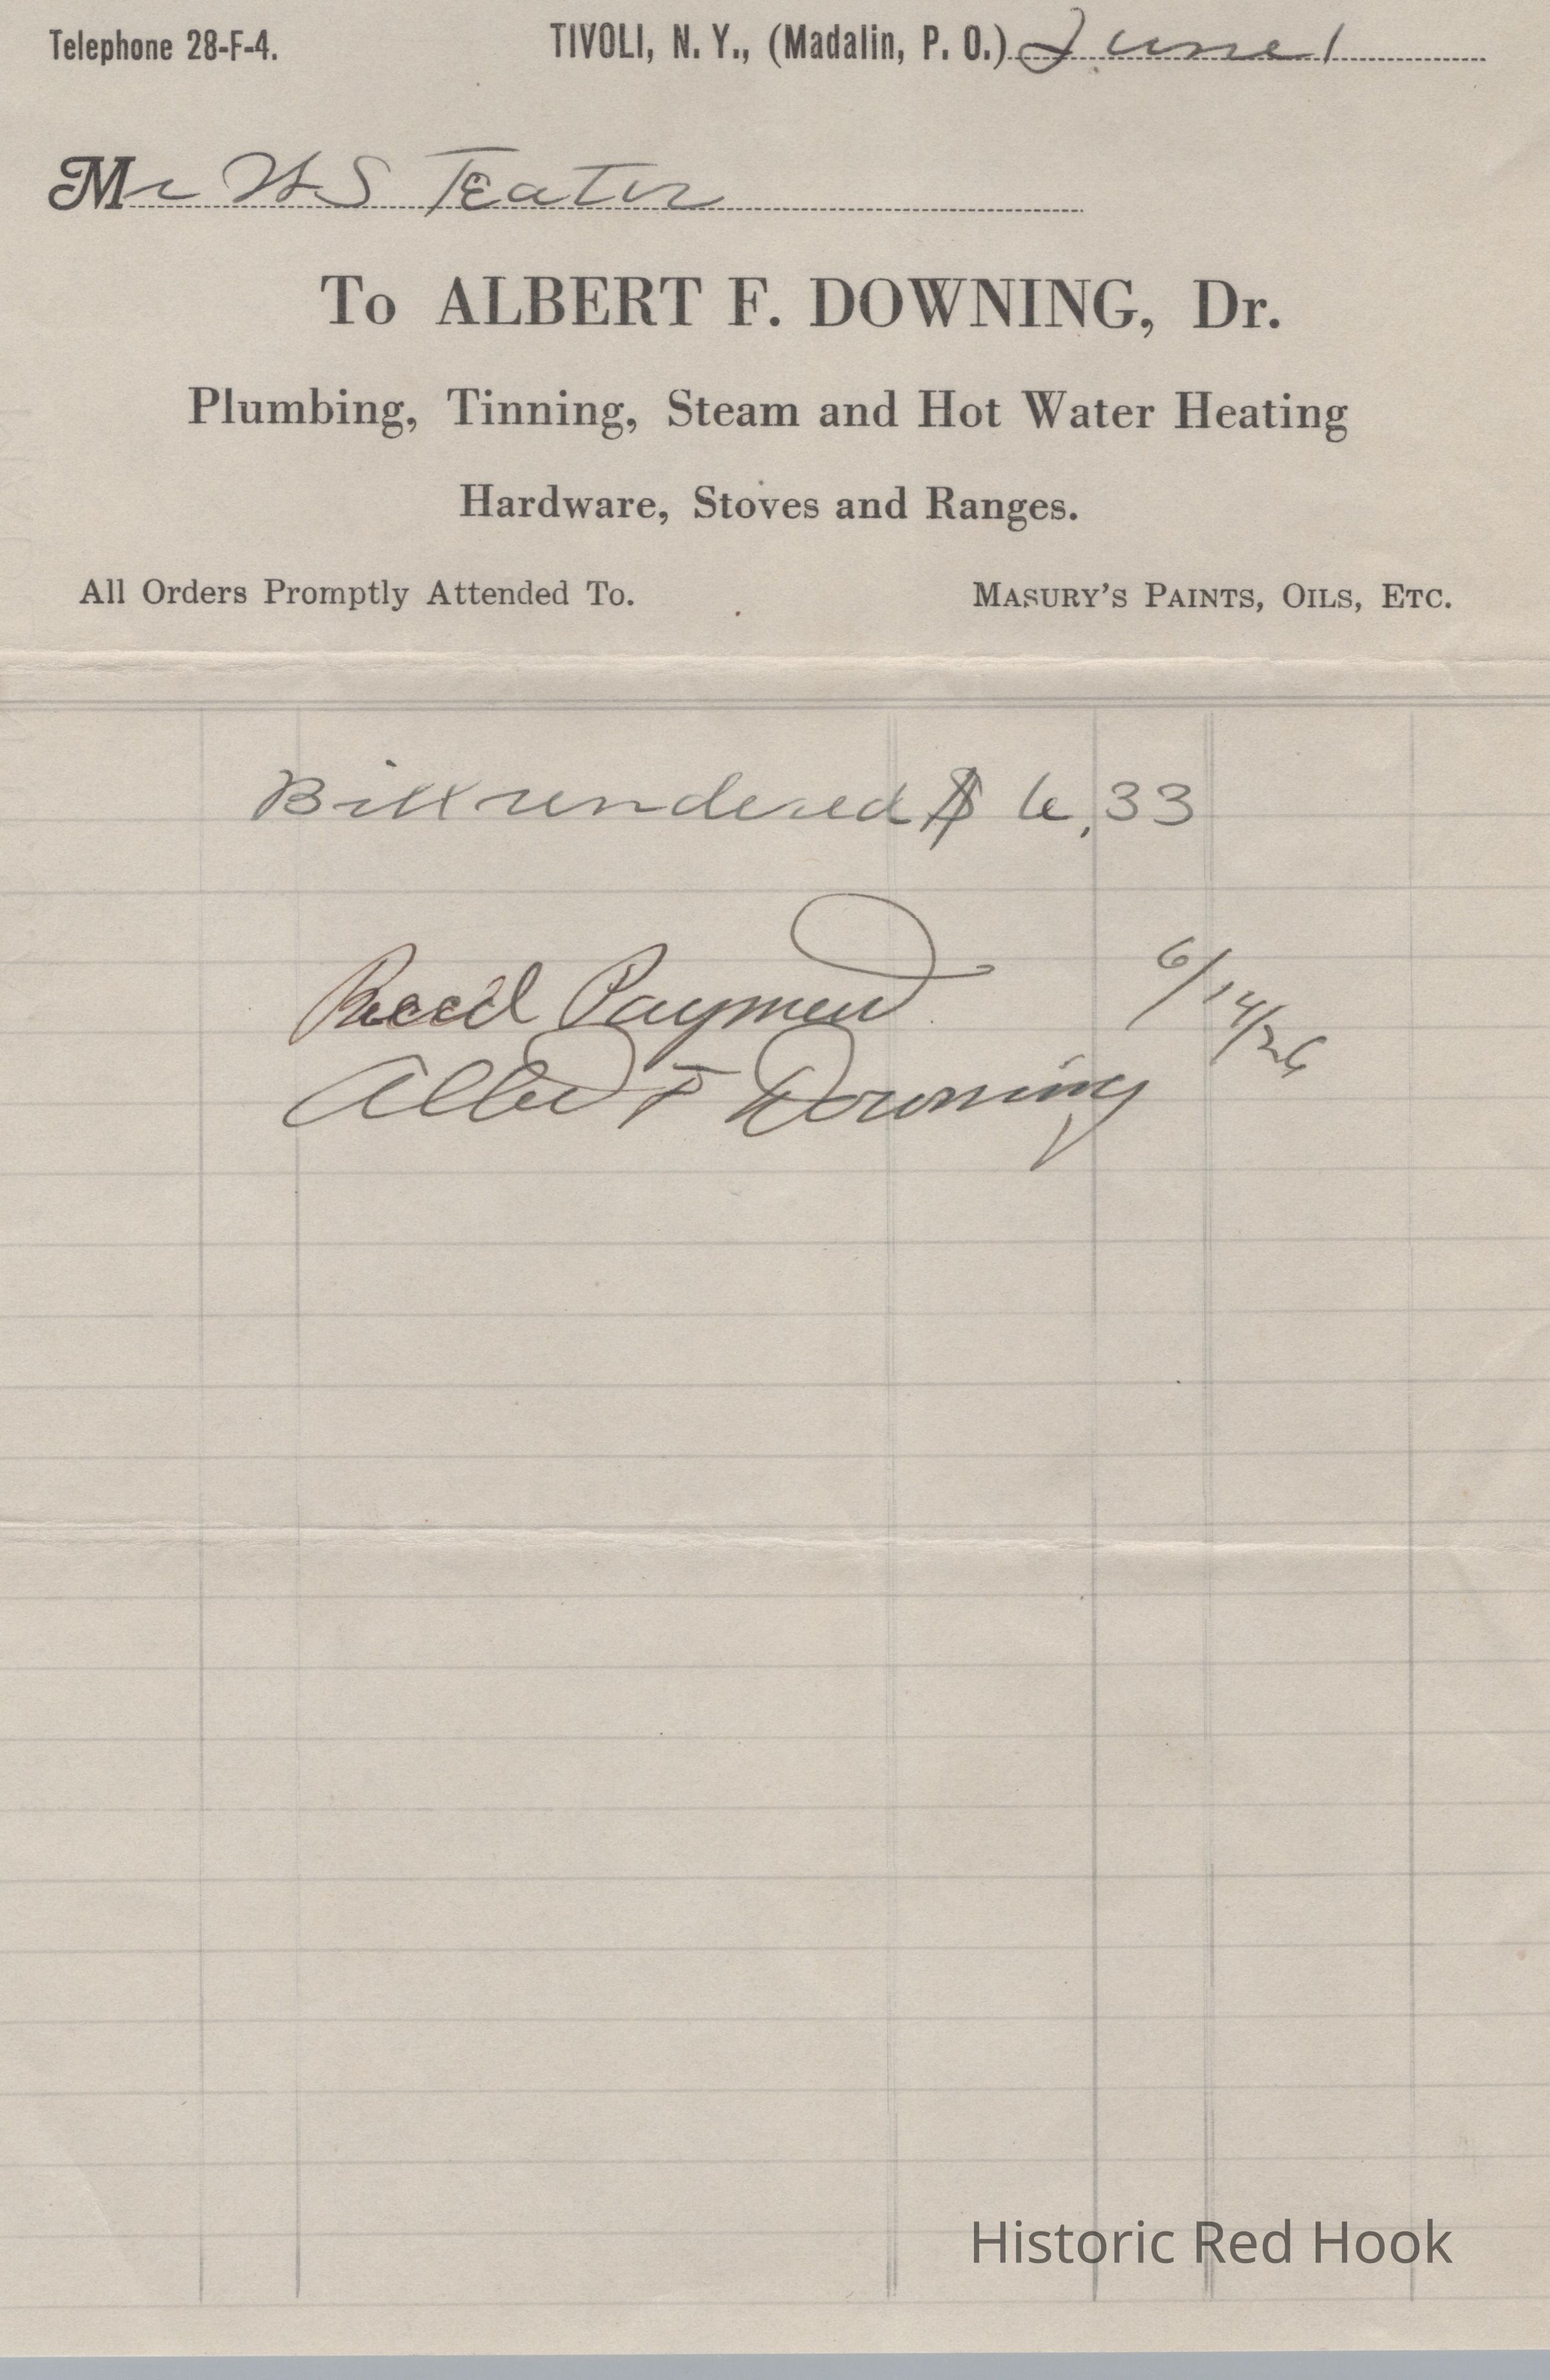 Telephone 28-F-4. TIVOLI, N. Y., (Madalin, P. O.) June 1
Mr H S Teator
To ALBERT F. DOWNING, Dr.
Plumbing, Tinning, Steam and Hot Water Heating
Hardware, Stoves and Ranges.
All Orders Promptly Attended To. MASURY'S PAINTS, OILS, ETC.
Bill rendered $ 6.33
Recd Payment 6/14/26
Albert F Downing
Historic Red Hook